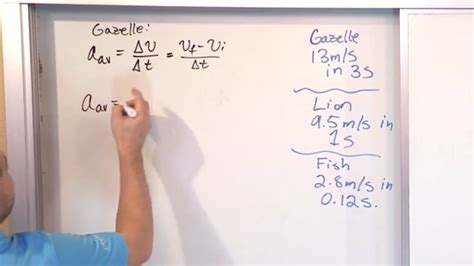 Gazelle:
a_av = Δv/Δt = (v_f - v_i)/Δt
a_av =
Gazelle
13m/s
in 3s
Lion
9.5m/s in
1s
Fish
2.8m/s in
0.12s.